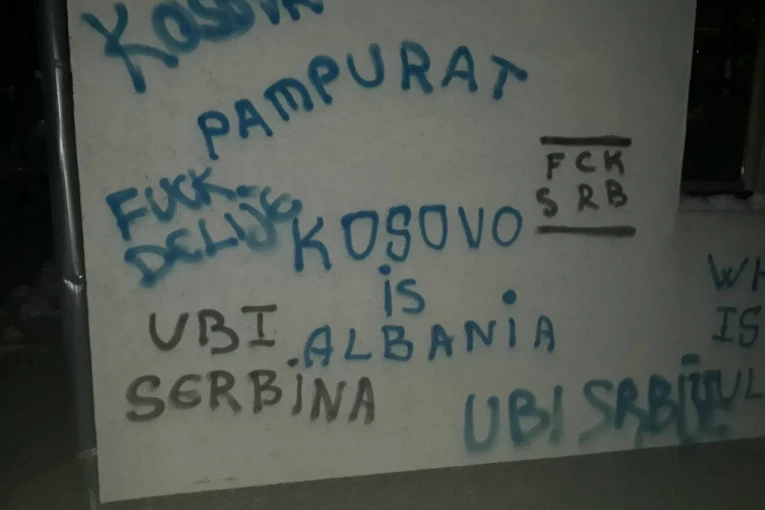 KOSOVA
PAMPURAT
FUCK
DELIJE
FCK
SRB
KOSOVO
is
ALBANiA
UBI
SERBiNA
UBI SRBiJU
WH
IS